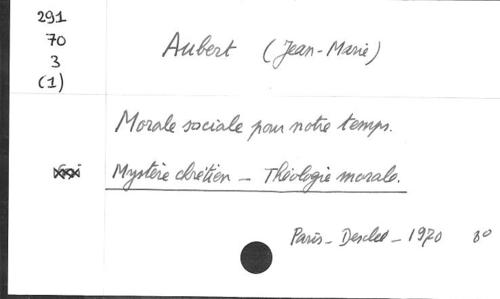 291
70
3
(1)
Aubert (Jean-Marie)
Morale sociale pour notre temps.
Mystère chrétien - Théologie morale.
Paris - Desclée - 1970 8°